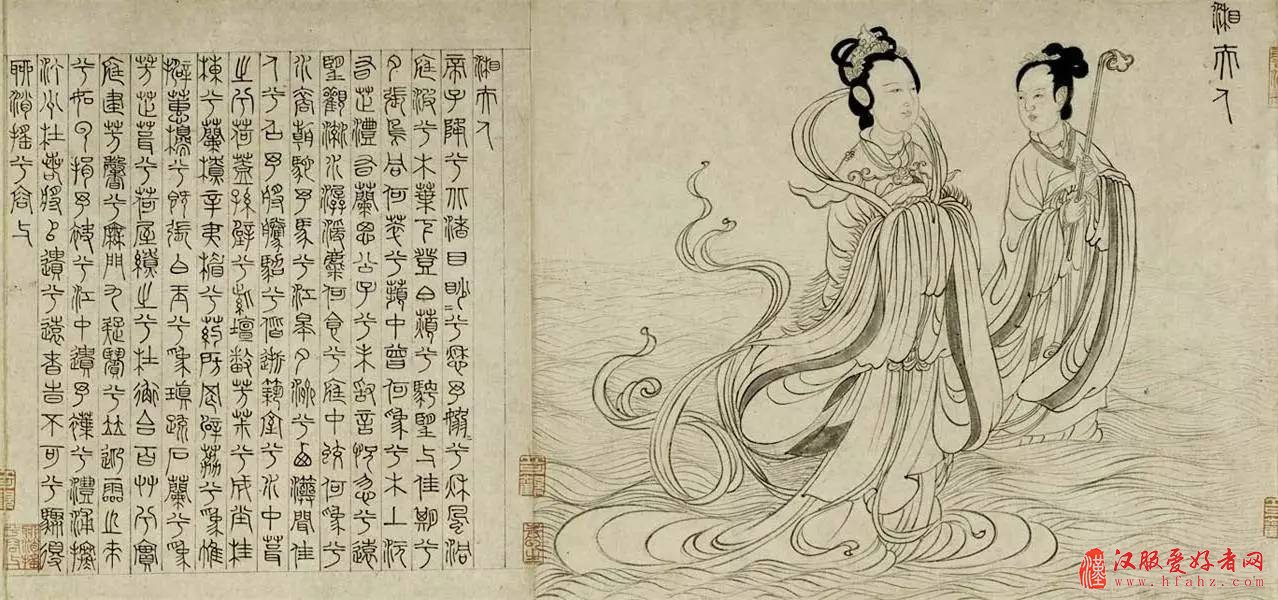 湘夫人
湘夫人
帝子降兮北渚目眇兮愁予嫋兮秋風洞
庭波兮木葉下登白薠兮騁望与佳期兮
夕張鳥何萃兮蘋中罾何為兮木上沅
有芷澧有蘭思公子兮未敢言怳忽兮遠
望觀流水潺湲麋何食兮庭中蛟何為兮
水裔朝馳予馬兮江皋夕濟兮西澨聞佳
人兮召予將騰駕兮偕逝築室兮水中葺
之兮荷蓋蓀壁兮紫壇播芳椒兮成堂桂
棟兮蘭橑辛夷楣兮葯房罔薜荔兮為帷
擗蕙櫋兮既張白玉兮為瑱疏石蘭兮為
芳芷葺兮荷屋繚之兮杜衡合百草兮實
庭建芳馨兮廡門九疑繽兮並迎靈之來
兮如雲捐予袂兮江中遺予褋兮澧浦搴
汀洲杜若將以遺兮遠者告不可兮驟得
聊逍遙兮容与
漢
汉服爱好者网
www.hfahz.com